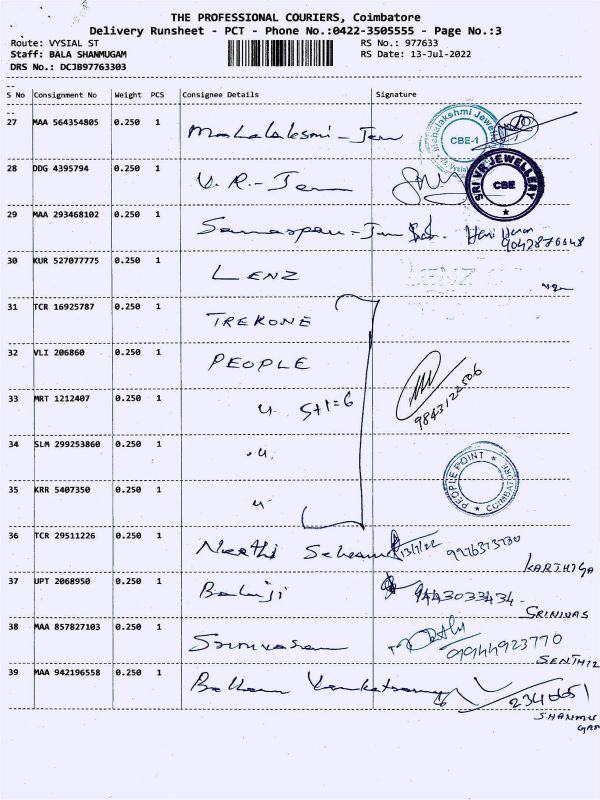 THE PROFESSIONAL COURIERS, Coimbatore
Delivery Runsheet - PCT - Phone No.:0422-3505555 - Page No.:3
Route: VYSIAL ST
RS No.: 977633
Staff: BALA SHANMUGAM
RS Date: 13-Jul-2022
DRS No.: DCJB97763303
S No Consignment No Weight PCS Consignee Details Signature
27 MAA 564354805 0.250 1 Mahalakshmi - Jew
Mahalakshmi Jewel CBE-1
28 DDG 4395794 0.250 1 V. R. - Jew
SRI VR JEWELLERY CBE
29 MAA 293468102 0.250 1 Hari
30 KUR 527077775 0.250 1 LENZ LENZ
31 TCR 16925787 0.250 1 TREKONE
32 VLI 206860 0.250 1 PEOPLE
33 MRT 1212407 0.250 1 " 5+1=6 9843122506
34 SLM 299253860 0.250 1 "
PEOPLE POINT COIMBATORE
35 KRR 5407350 0.250 1 "
36 TCR 29511226 0.250 1 13/7/22
KARTHIGA
37 UPT 2068950 0.250 1 Balaji 9443033434
SRINIVAS
38 MAA 857827103 0.250 1 Srinivasan 09944923770
SENTHIL
39 MAA 942196558 0.250 1
SHANMUGAM